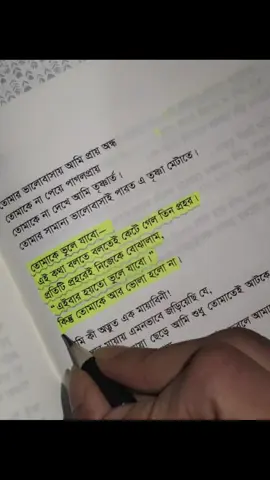 তোমার ভালোবাসায় আমি প্রায় অন্ধ
তোমাকে না পেয়ে পাগলপ্রায়
তোমাকে না দেখে আমি তৃষ্ণার্ত।
তোমার সামান্য ভালোবাসাই পারত এ তৃষ্ণা মেটাতে।
তোমাকে ভুলে যাবো—
এই কথা বলতে বলতেই কেটে গেল তিন প্রহর।
প্রতিটি প্রহরেই নিজেকে বোঝালাম,
"এইবার হয়তো ভুলে যাবো।"
কিন্তু তোমাকে আর ভোলা হলো না।
মি কী অদ্ভুত এক মায়াবিনী!
মায়ায় এমনভাবে জড়িয়েছি যে,
ছেড়ে আমি শুধু তোমাতেই আটকে